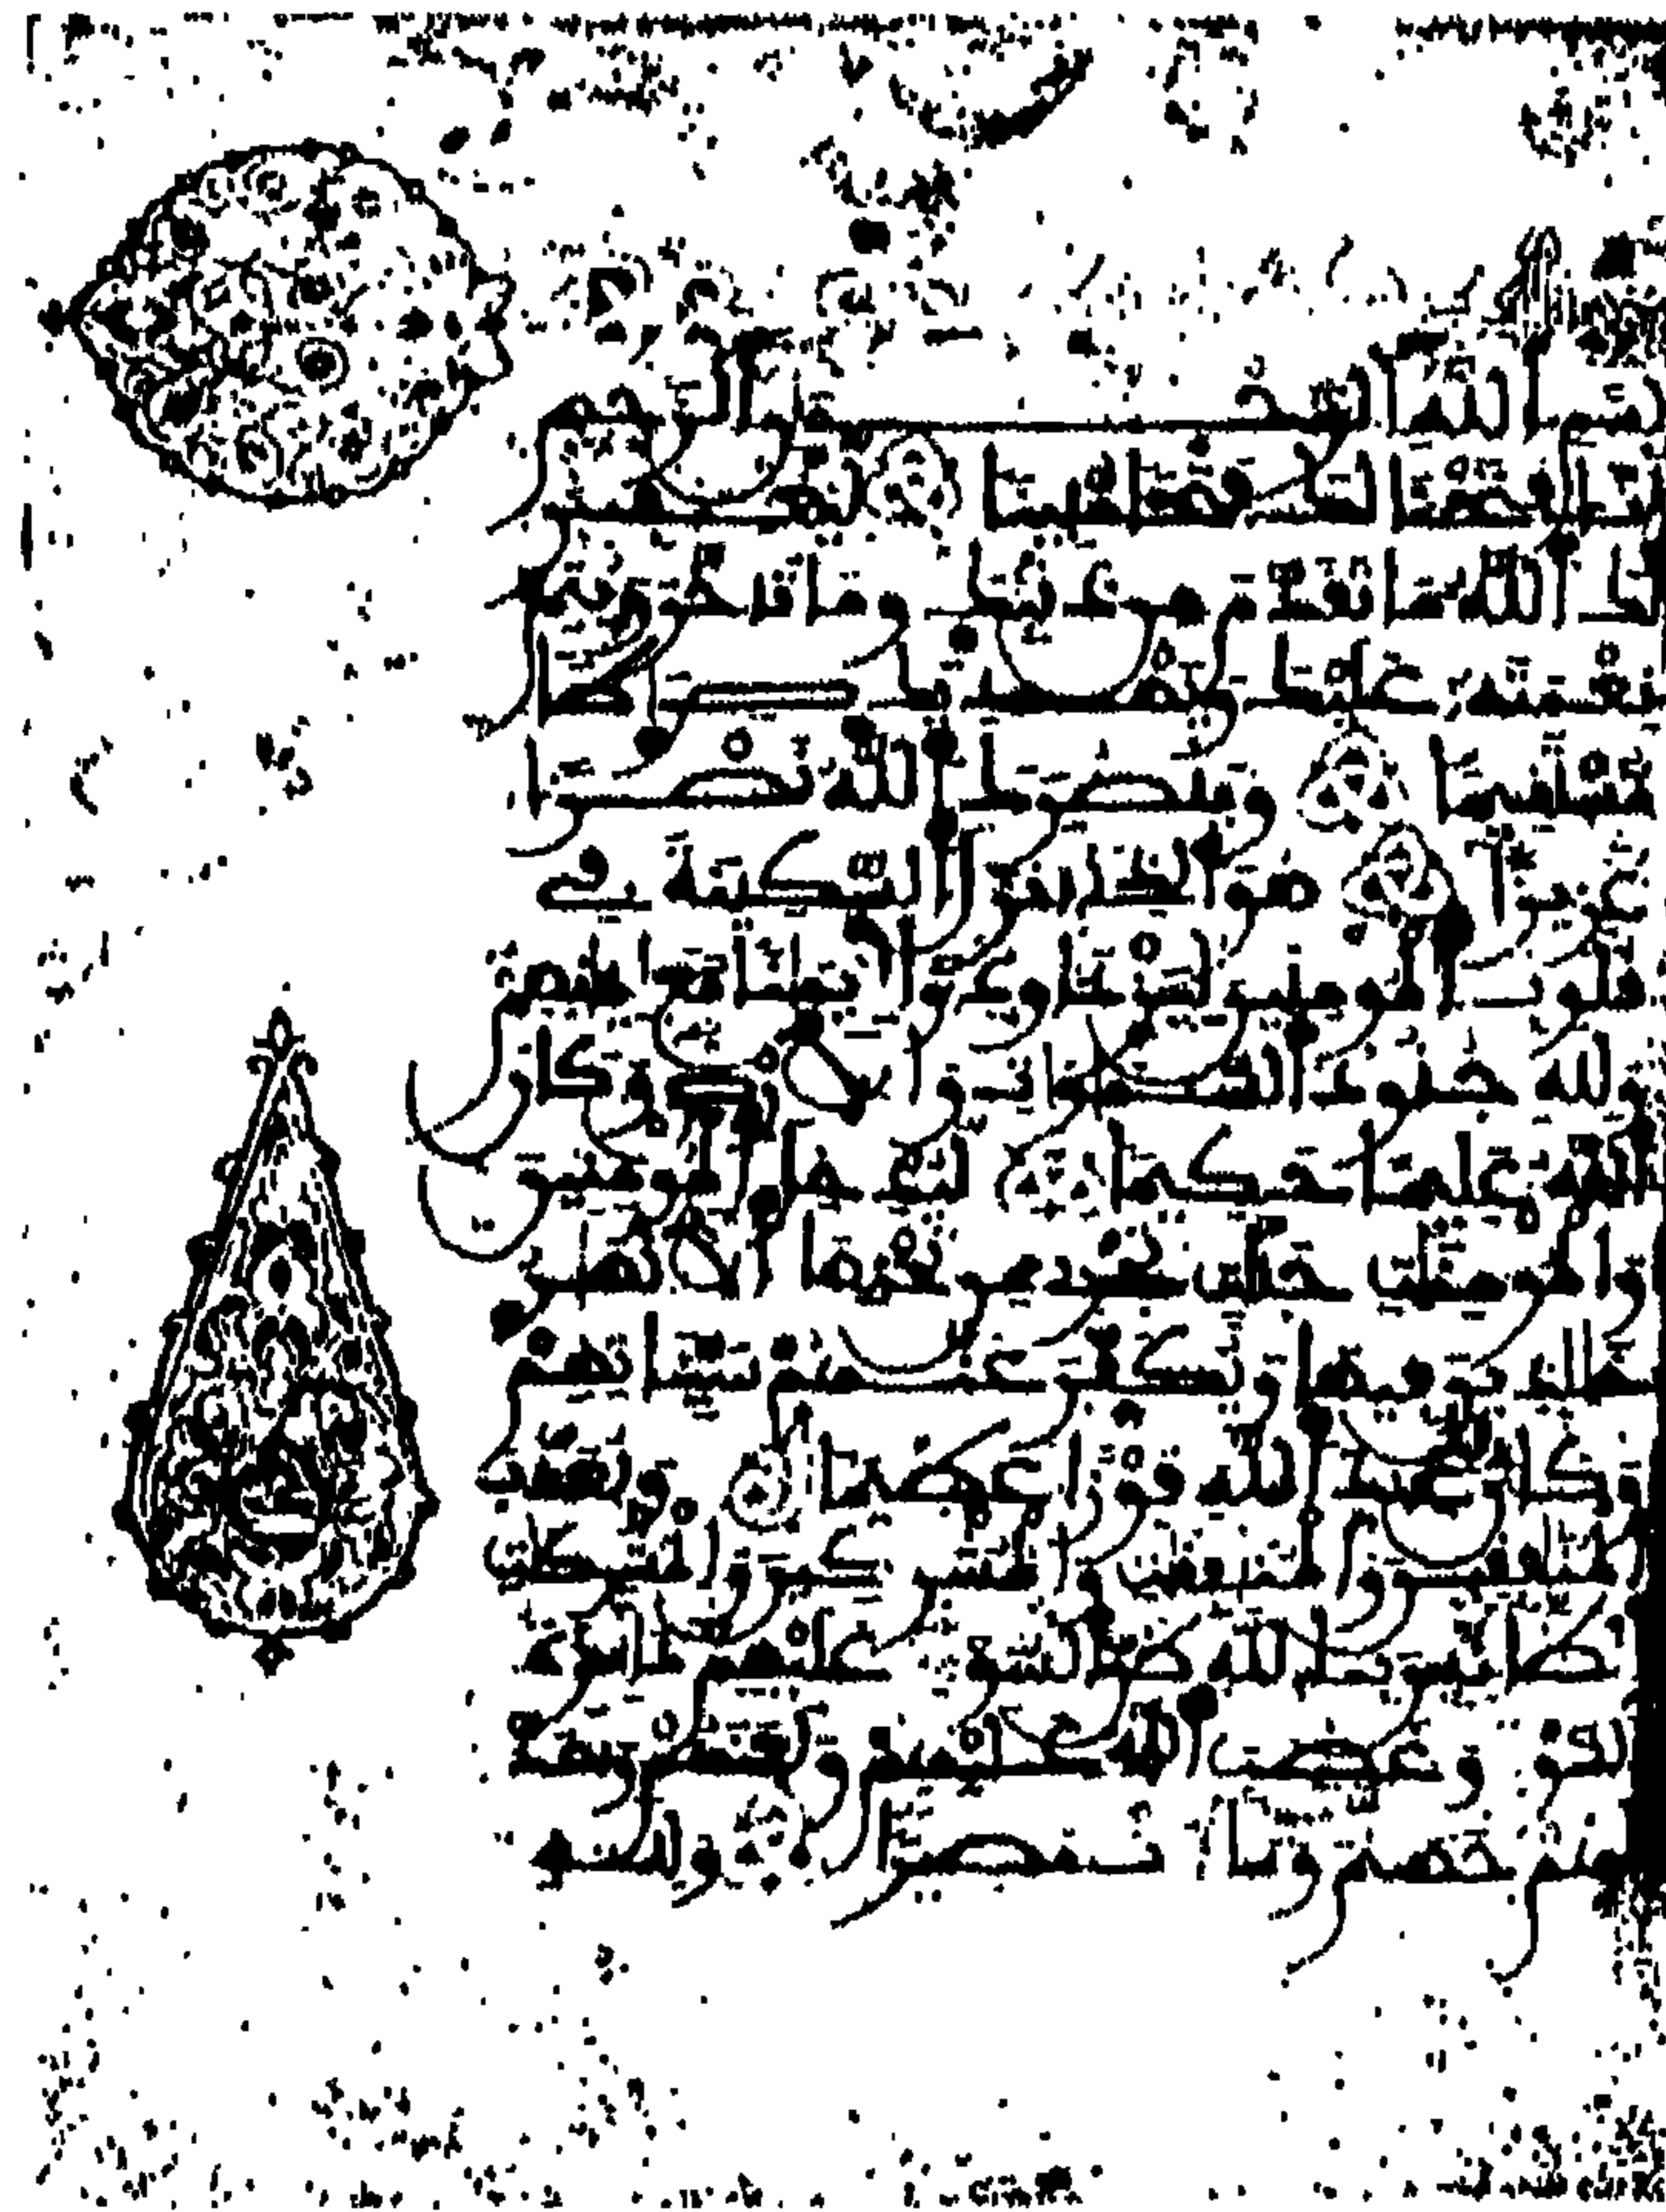 بسم الله الرحمن الرحيم
إنا فتحنا لك فتحا مبينا ليغفر
لك الله ما تقدم من ذنبك وما تأخر ويتم
نعمته عليك ويهديك صراطا
مستقيما وينصرك الله نصرا
عزيزا هو الذي أنزل السكينة في
قلوب المومنين ليزدادوا إيمانا مع إيمانهم
ولله جنود السموات والأرض وكان
الله عليما حكيما ليدخل المومنين
والمومنات جنات تجري من تحتها الأنهار
خالدين فيها ويكفر عنهم سيئاتهم
وكان ذلك عند الله فوزا عظيما ويعذب
المنافقين والمنافقات والمشركين والمشركات
الظانين بالله ظن السوء عليهم دائرة
السوء وغضب الله عليهم ولعنهم وأعد
لهم جهنم وساءت مصيرا ولله